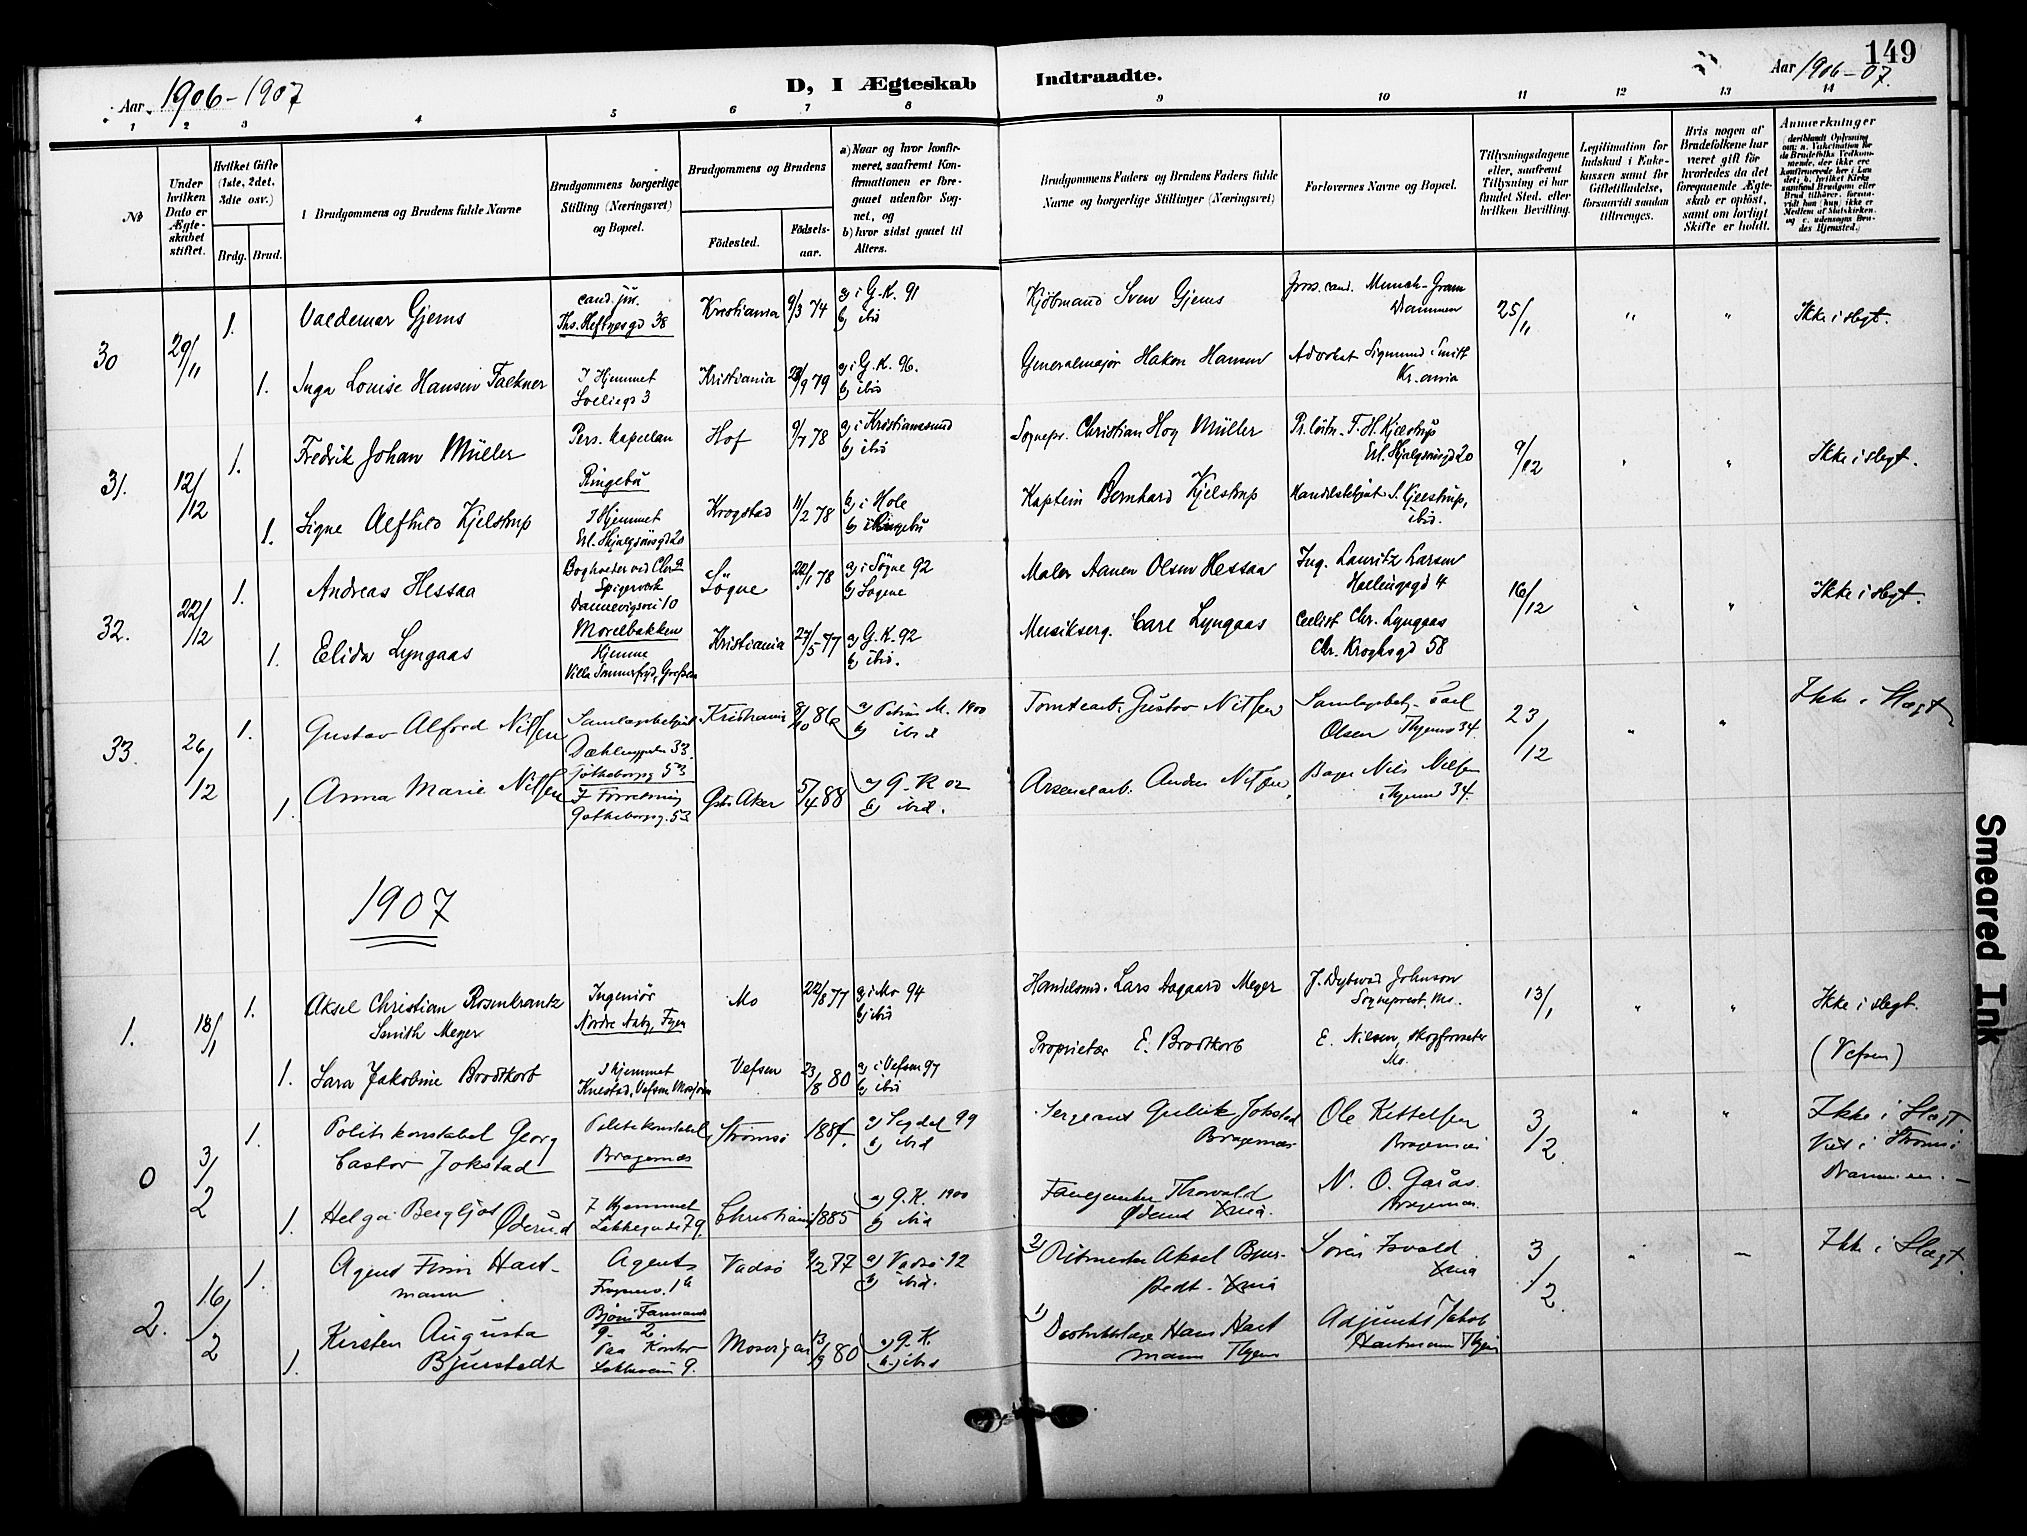 Aar 1906-1907
D, I Ægteskab Indtraadte.
Aar 1906-07.
149
1 2 3 4 5 6 7 8 9 10 11 12 13 14
No
Under hvilken Dato er Ægteskabet stiftet.
Hvilket Gifte (1ste, 2det, 3die osv.)
Brdg. Brud.
Brudgommens og Brudens fulde Navne
Brudgommens borgerlige Stilling (Næringsvei) og Bopæl.
Brudgommens og Brudens
Födested.
Födselsaar.
a) Naar og hvor konfirmeret, saafremt Konfirmationen er foregaaet udenfor Sognet, og
b) hvor sidst gaaet til Alters.
Brudgommens Faders og Brudens Faders fulde Navne og borgerlige Stillinger (Næringsvei)
Forlovernes Navne og Bopæl.
Tillysningsdagene eller, saafremt Tillysning ei har fundet Sted, efter hvilken Bevilling.
Legitimation for Indskud i Enkekassen samt for Giftetilladelse, forsaavidt saadan tiltrænges.
Hvis nogen af Brudefolkene har været gift för hvorledes da det foregaaende Ægteskab er oplöst, samt om lovligt Skifte er holdt.
Anmærkninger
30
29/11
1. Valdemar Gjems
cand. jur.
Ths. Heftyesgd 38
Kristiania 9/3 74
a) i G.K. 91
b) ibid
Kjöbmand Sven Gjems
Drammen
25/11
Ikke i slegt.
1. Inga Louise Hansen Falkner
I Hjemmet
3
Kristiania 79
a) i G.K. 96.
b) ibid
Generalmajor Hakon Hansen
Advokat Sigmund Smith
Kr.ania
31.
12/12
1. Fredrik Johan Müller
Pers. kapellan
Ringebu
Hof 78
a) i Kristianssund
b) ibid
Sognepr. Christian Hoy Müller
9/12
Ikke i slegt.
1. Signe Alfhild Kjelstrup
I Hjemmet
Krogstad 11/2 78
a) i Hole
b) i Ringebu
Kaptein Bernhard Kjelstrup
ibid.
32.
22/12
1. Andreas Hessaa
Spigerverk
Dannevigsvei 10
Sögne 22/1 78
a) i Sögne 92
b) Sögne
Maler Aanen Olsen Hessaa
Ing. Lauritz Larsen
16/12
Ikke i slegt.
1. Elida Lyngaas
Hjemme
Kristiania 27/5 77
a) G.K. 92
b) ibid.
Musikserg. Carl Lyngaas
Cellist Chr. Lyngaas
Chr. Kroghsgd 58
33.
26/12
1. Gustav Alfred Nilsen
Dæhlenggaten 33.
Götheborgg 53
Kristiania 8/10 86
a) Petrus M. 1900
b) ibid
Tomtearb. Gustav Nilsen
Olsen
23/12
Ikke i Slægt
1. Anna Marie Nilsen
I Forretning
Götheborgg. 53
Östre Aker 5/4 88
a) G. K 02
b) ibid.
Arsenalarb. Anders Nilsen
Bager Nils Nilsen
1907
1.
18/1
1. Aksel Christian Rosenkrantz
Smith Meyer
Ingeniör
Nordre Aaby, Fyen
Mo 22/8 77
a) i Mo 94
b) ibid
Handelsmd. Lars Aagaard Meyer
J. Dybwad Johnson
Sogneprest, Mo.
13/1
Ikke i slegt.
(Vefsen)
1. Sara Jakobine Brodtkorb
I hjemmet
Vefsen 23/8 80
a) i Vefsen 97
b) ibid
Proprietær E. Brodtkorb
E. Nilsen, skogforvalter
Mo.
0
3/2
1. Politikonstabel Georg
Castor Jokstad
Politikonstabel
Bragernæs
Strömsö
a) Sigdal 99
b) ibid
Sergeant Gulbik Jokstad
Bragernæs
Ole Kittelsen
Bragernæs
3/2
Ikke i Slægt
Viet i Strömsö
Drammen.
1. Helga Bergljot Öderud
I Hjemmet
Lakkegade 79.
Christiania 1885
a) G.K. 1900
b) ibid
Fanejunker Thorvald
Öderud Xnia.
N. O. Garås.
Bragernæs.
2.
16/2
1. Agent Finn Hartmann
Agent
Vadsö 9/2 77
a) Vadsö 92
b) ibid.
2) Ritmester Aksel Bjurstedt. Xnia
Xnia
3/2
Ikke i Slægt
1. Kirsten Augusta
Bjurstedt
Paa Kontor
80
a) G.K.
b) ibid
1) Distriktslæge Hans Hartmann
Adjunkt Jakob
Hartmann
Smeared Ink